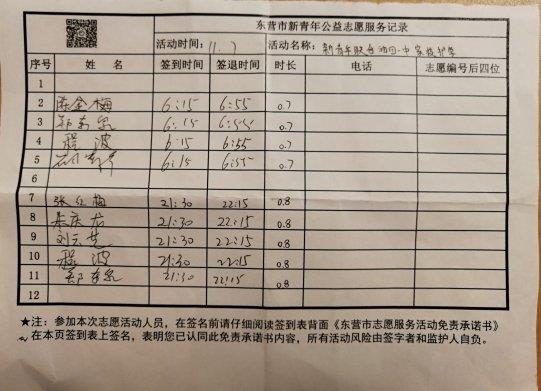 东营市新青年公益志愿服务记录
活动时间：11.7 活动名称：
序号 姓 名 签到时间 签退时间 时长 电话 志愿编号后四位
1
2 陈金梅 6:15 6:55 0.7
3 6:15 6:55 0.7
4 程波 6:15 6:55 0.7
5 6:15 6:55 0.7
6
7 张红梅 21:30 22:15 0.8
8 庆龙 21:30 22:15 0.8
9 刘云 21:30 22:15 0.8
10 程波 21:30 22:15 0.8
11 21:30 22:15 0.8
12
★注：参加本次志愿活动人员，在签名前请仔细阅读签到表背面《东营市志愿服务活动免责承诺书》
~ 在本页签到表上签名，表明您已认同此免责承诺书内容，所有活动风险由签字者和监护人自负。